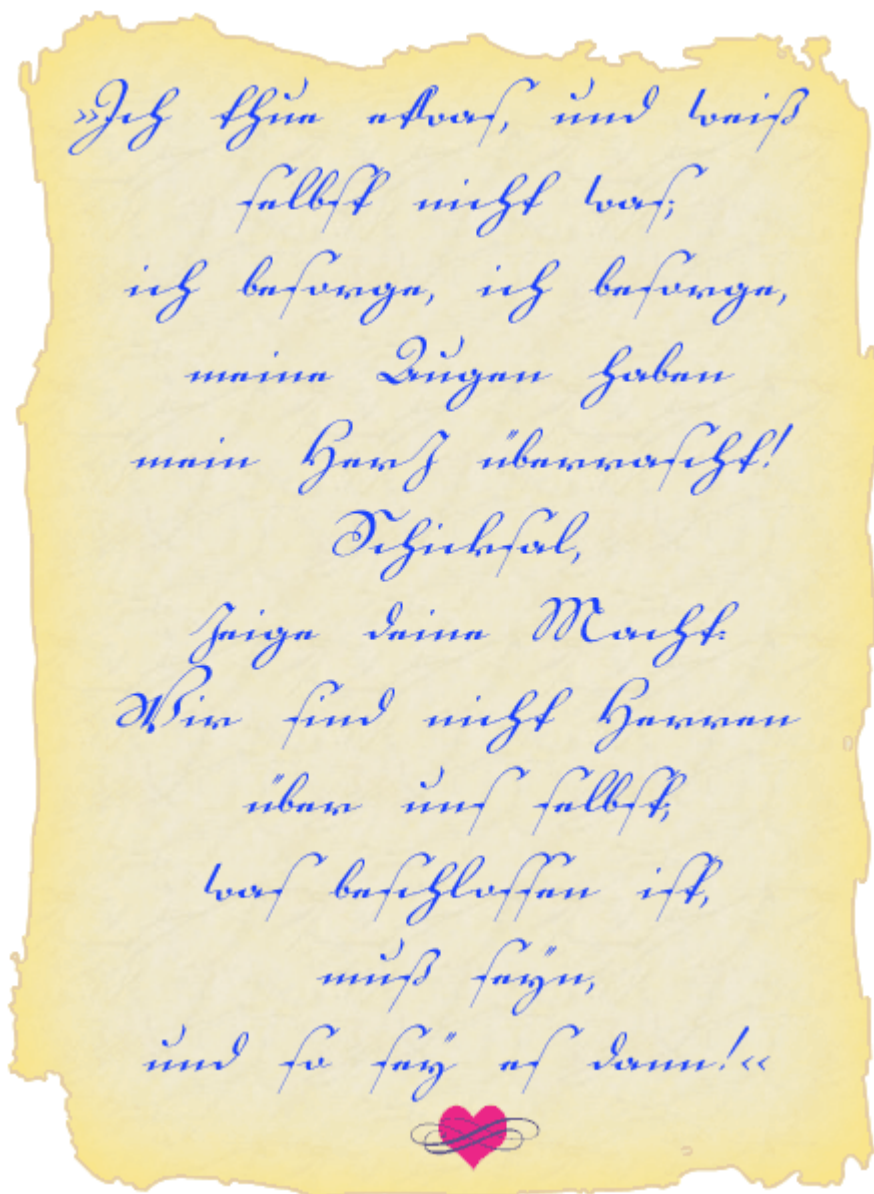 »Ich thue etwas, und weiß
selbst nicht was;
ich besorge, ich besorge,
meine Augen haben
mein Herz überrascht!
Schicksal,
zeige deine Macht:
Wir sind nicht Herren
über uns selbst;
was beschlossen ist,
muß seyn,
und so sey es dann!«